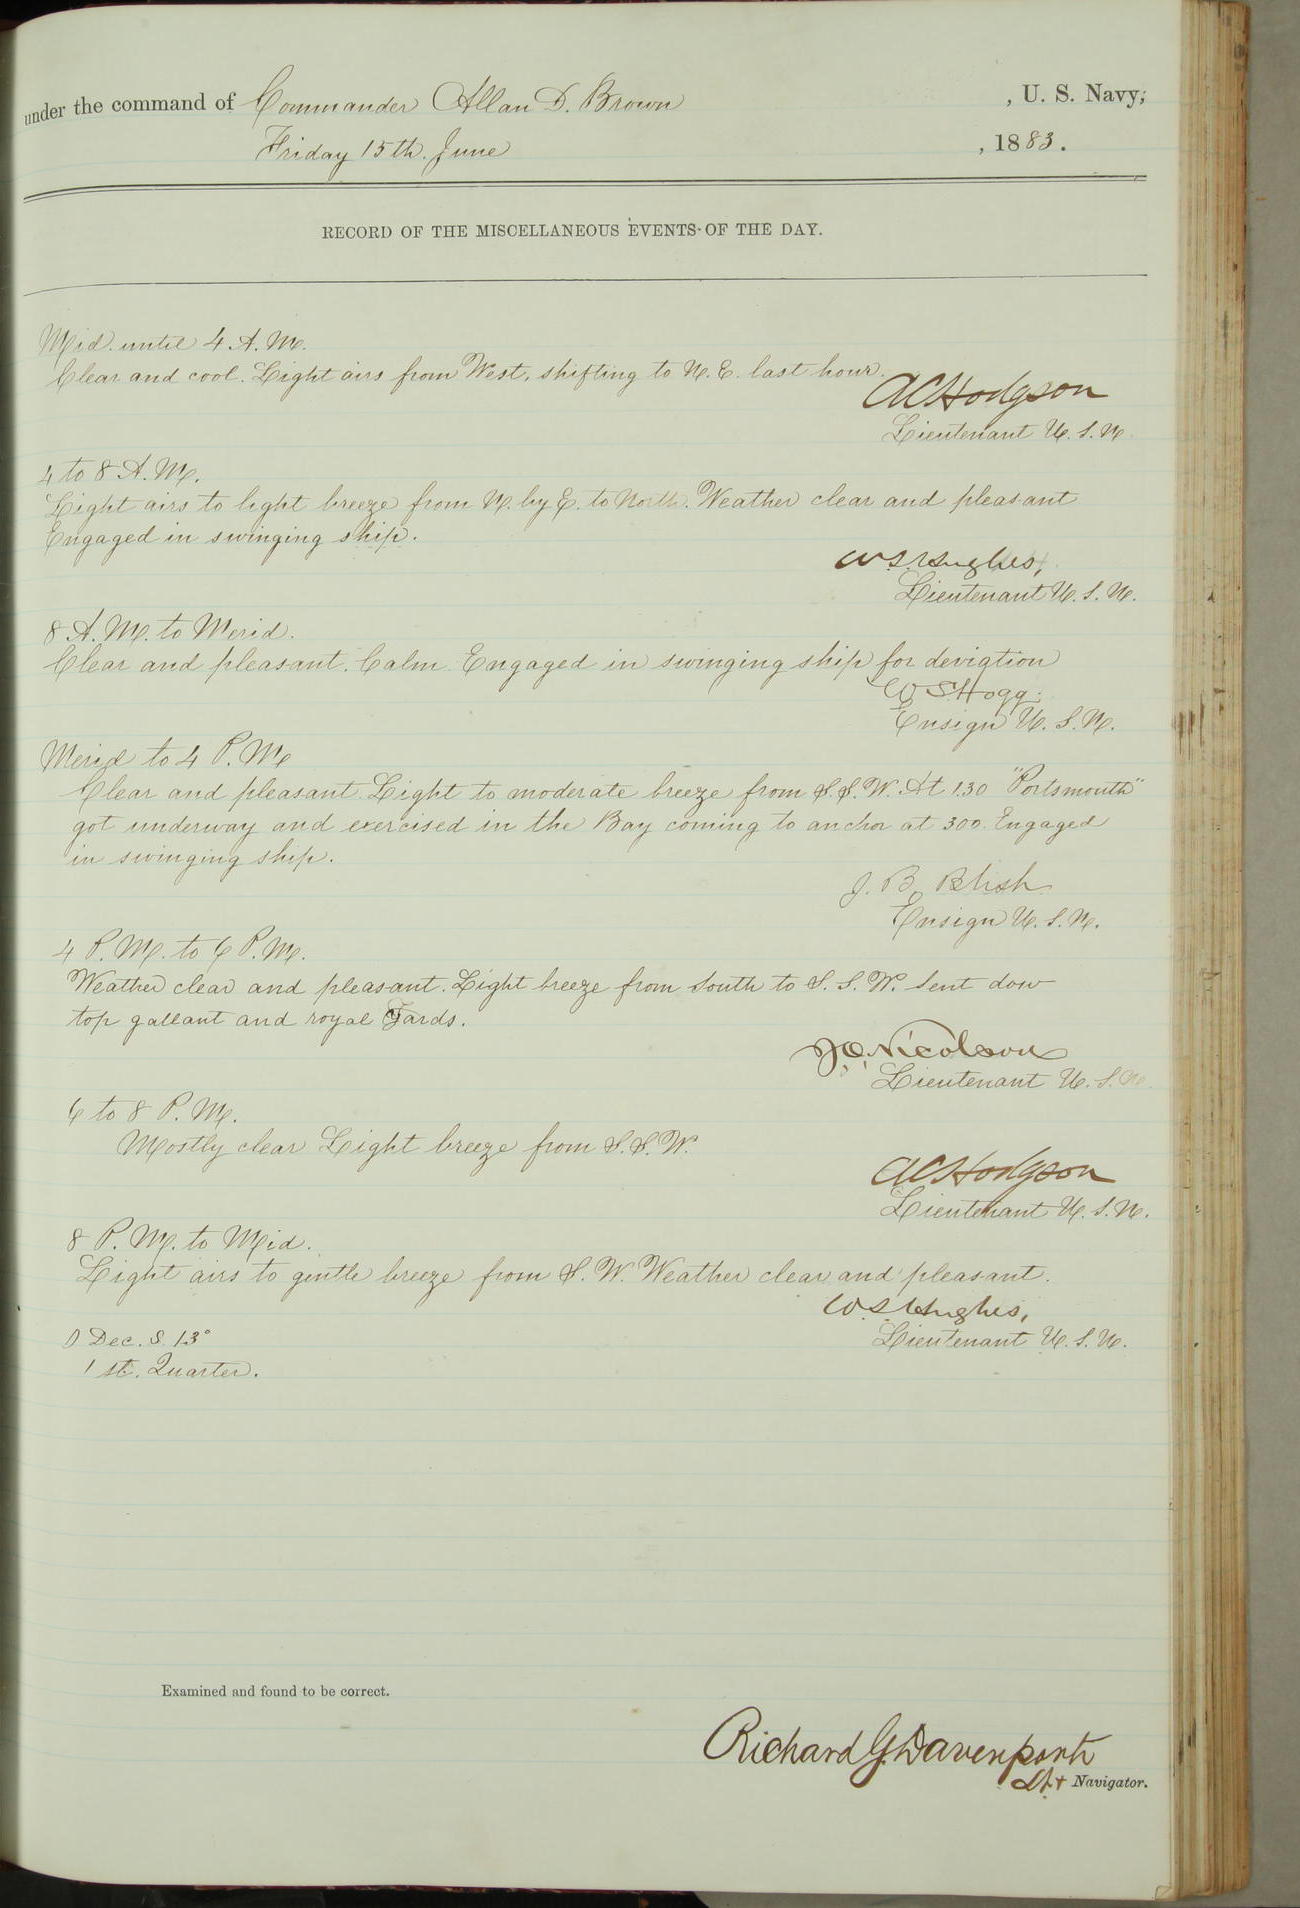 under the command of Commander Allan D. Brown , U. S. Navy,
Friday 15th. June , 1883.
RECORD OF THE MISCELLANEOUS EVENTS OF THE DAY.
Mid. until 4 A. M.
Clear and cool. Light airs from West, shifting to N. E. last hour.
A C Hodgson
Lieutenant U. S. N.
4 to 8 A. M.
Light airs to light breeze from N. by E. to North. Weather clear and pleasant
Engaged in swinging ship.
W. S. Hughes,
Lieutenant U. S. N.
8 A. M. to Merid.
Clear and pleasant. Calm. Engaged in swinging ship for deviation
W S Hogg.
Ensign U. S. N.
Merid to 4 P. M.
Clear and pleasant. Light to moderate breeze from S. S. W. At 1.30 "Portsmouth"
got underway and exercised in the Bay coming to anchor at 3 00. Engaged
in swinging ship.
J. B. Blish
Ensign U. S. N.
4 P. M. to 6 P. M.
Weather clear and pleasant. Light breeze from South to S. S. W. Sent dow
top gallant and royal Yards.
J. O. Nicolson
Lieutenant U. S. N.
6 to 8 P. M.
Mostly clear Light breeze from S. S. W.
A C Hodgson
Lieutenant U. S. N.
8 P. M. to Mid.
Light airs to gentle breeze from S. W. Weather clear and pleasant.
W. S. Hughes,
Lieutenant U. S. N.
Dec. S. 13°
1 st. Quarter.
Examined and found to be correct.
Richard G. Davenport
Lt. Navigator.